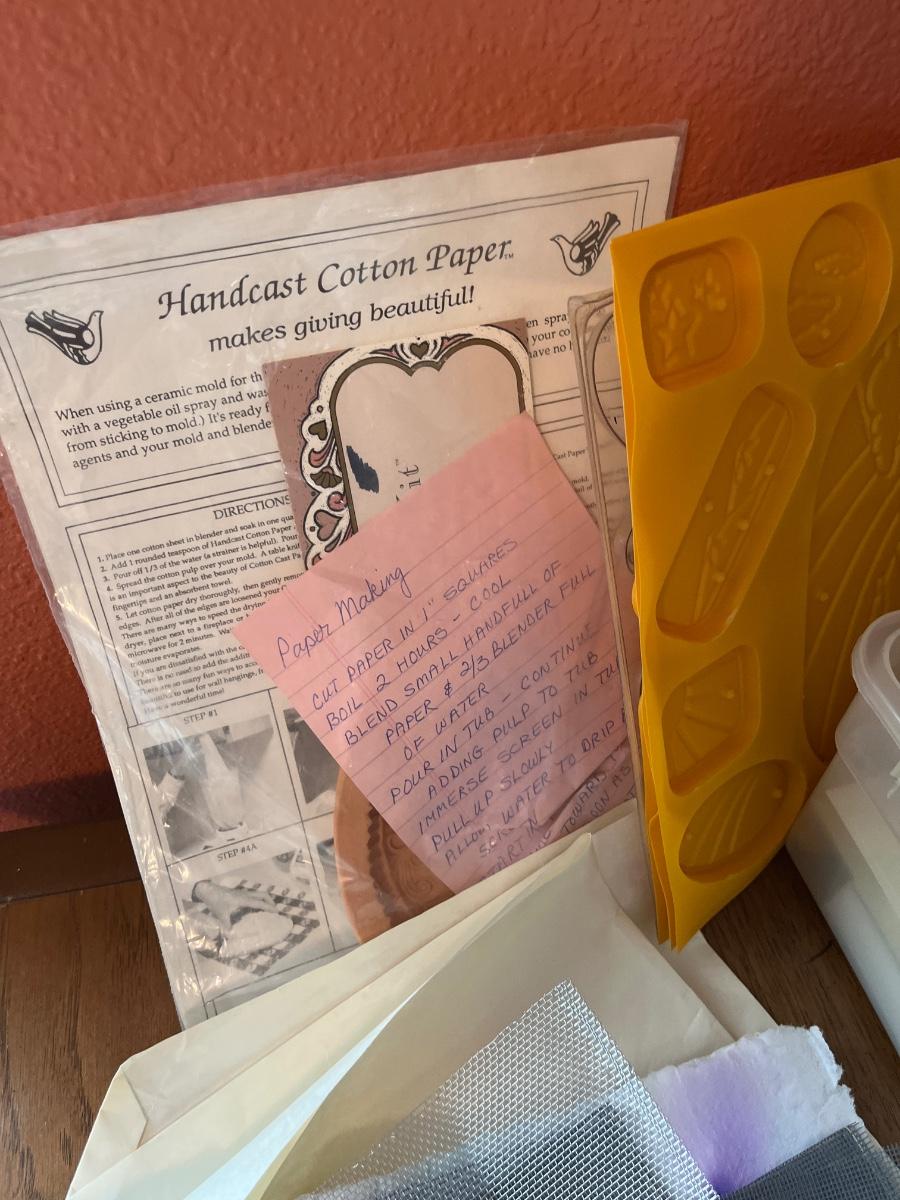 Handcast Cotton Paper™
makes giving beautiful!
When using a ceramic mold for th
with a vegetable oil spray and was
from sticking to mold.) It's ready f
agents and your mold and blende
en spra
your co
have no
Cast Paper
mold.
DIRECTIONS
1. Place one cotton sheet in blender and soak in one qua
2. Add 1 rounded teaspoon of Handcast Cotton Paper
3. Pour off 1/3 of the water (a strainer is helpful). Pour
4. Spread the cotton pulp over your mold. A table knif
is an important aspect to the beauty of Cotton Cast Pa
fingertips and an absorbent towel.
5. Let cotton paper dry thoroughly, then gently remo
edges. After all of the edges are loosened your
There are many ways to speed the drying
dryer, place next to a fireplace or
microwave for 2 minutes.
moisture evaporates.
If you are dissatisfied with the
There is no need to add the addit
There are so many fun ways to
to use for wall hangings,
Have a wonderful time!
STEP #1
STEP #4A
Paper Making
CUT PAPER IN 1" SQUARES
BOIL 2 HOURS - COOL
BLEND SMALL HANDFULL OF
PAPER & 2/3 BLENDER FULL
OF WATER
POUR IN TUB - CONTINUE
ADDING PULP TO TUB
IMMERSE SCREEN IN TU
PULL UP SLOWLY
ALLOW WATER TO DRIP
TOWARD